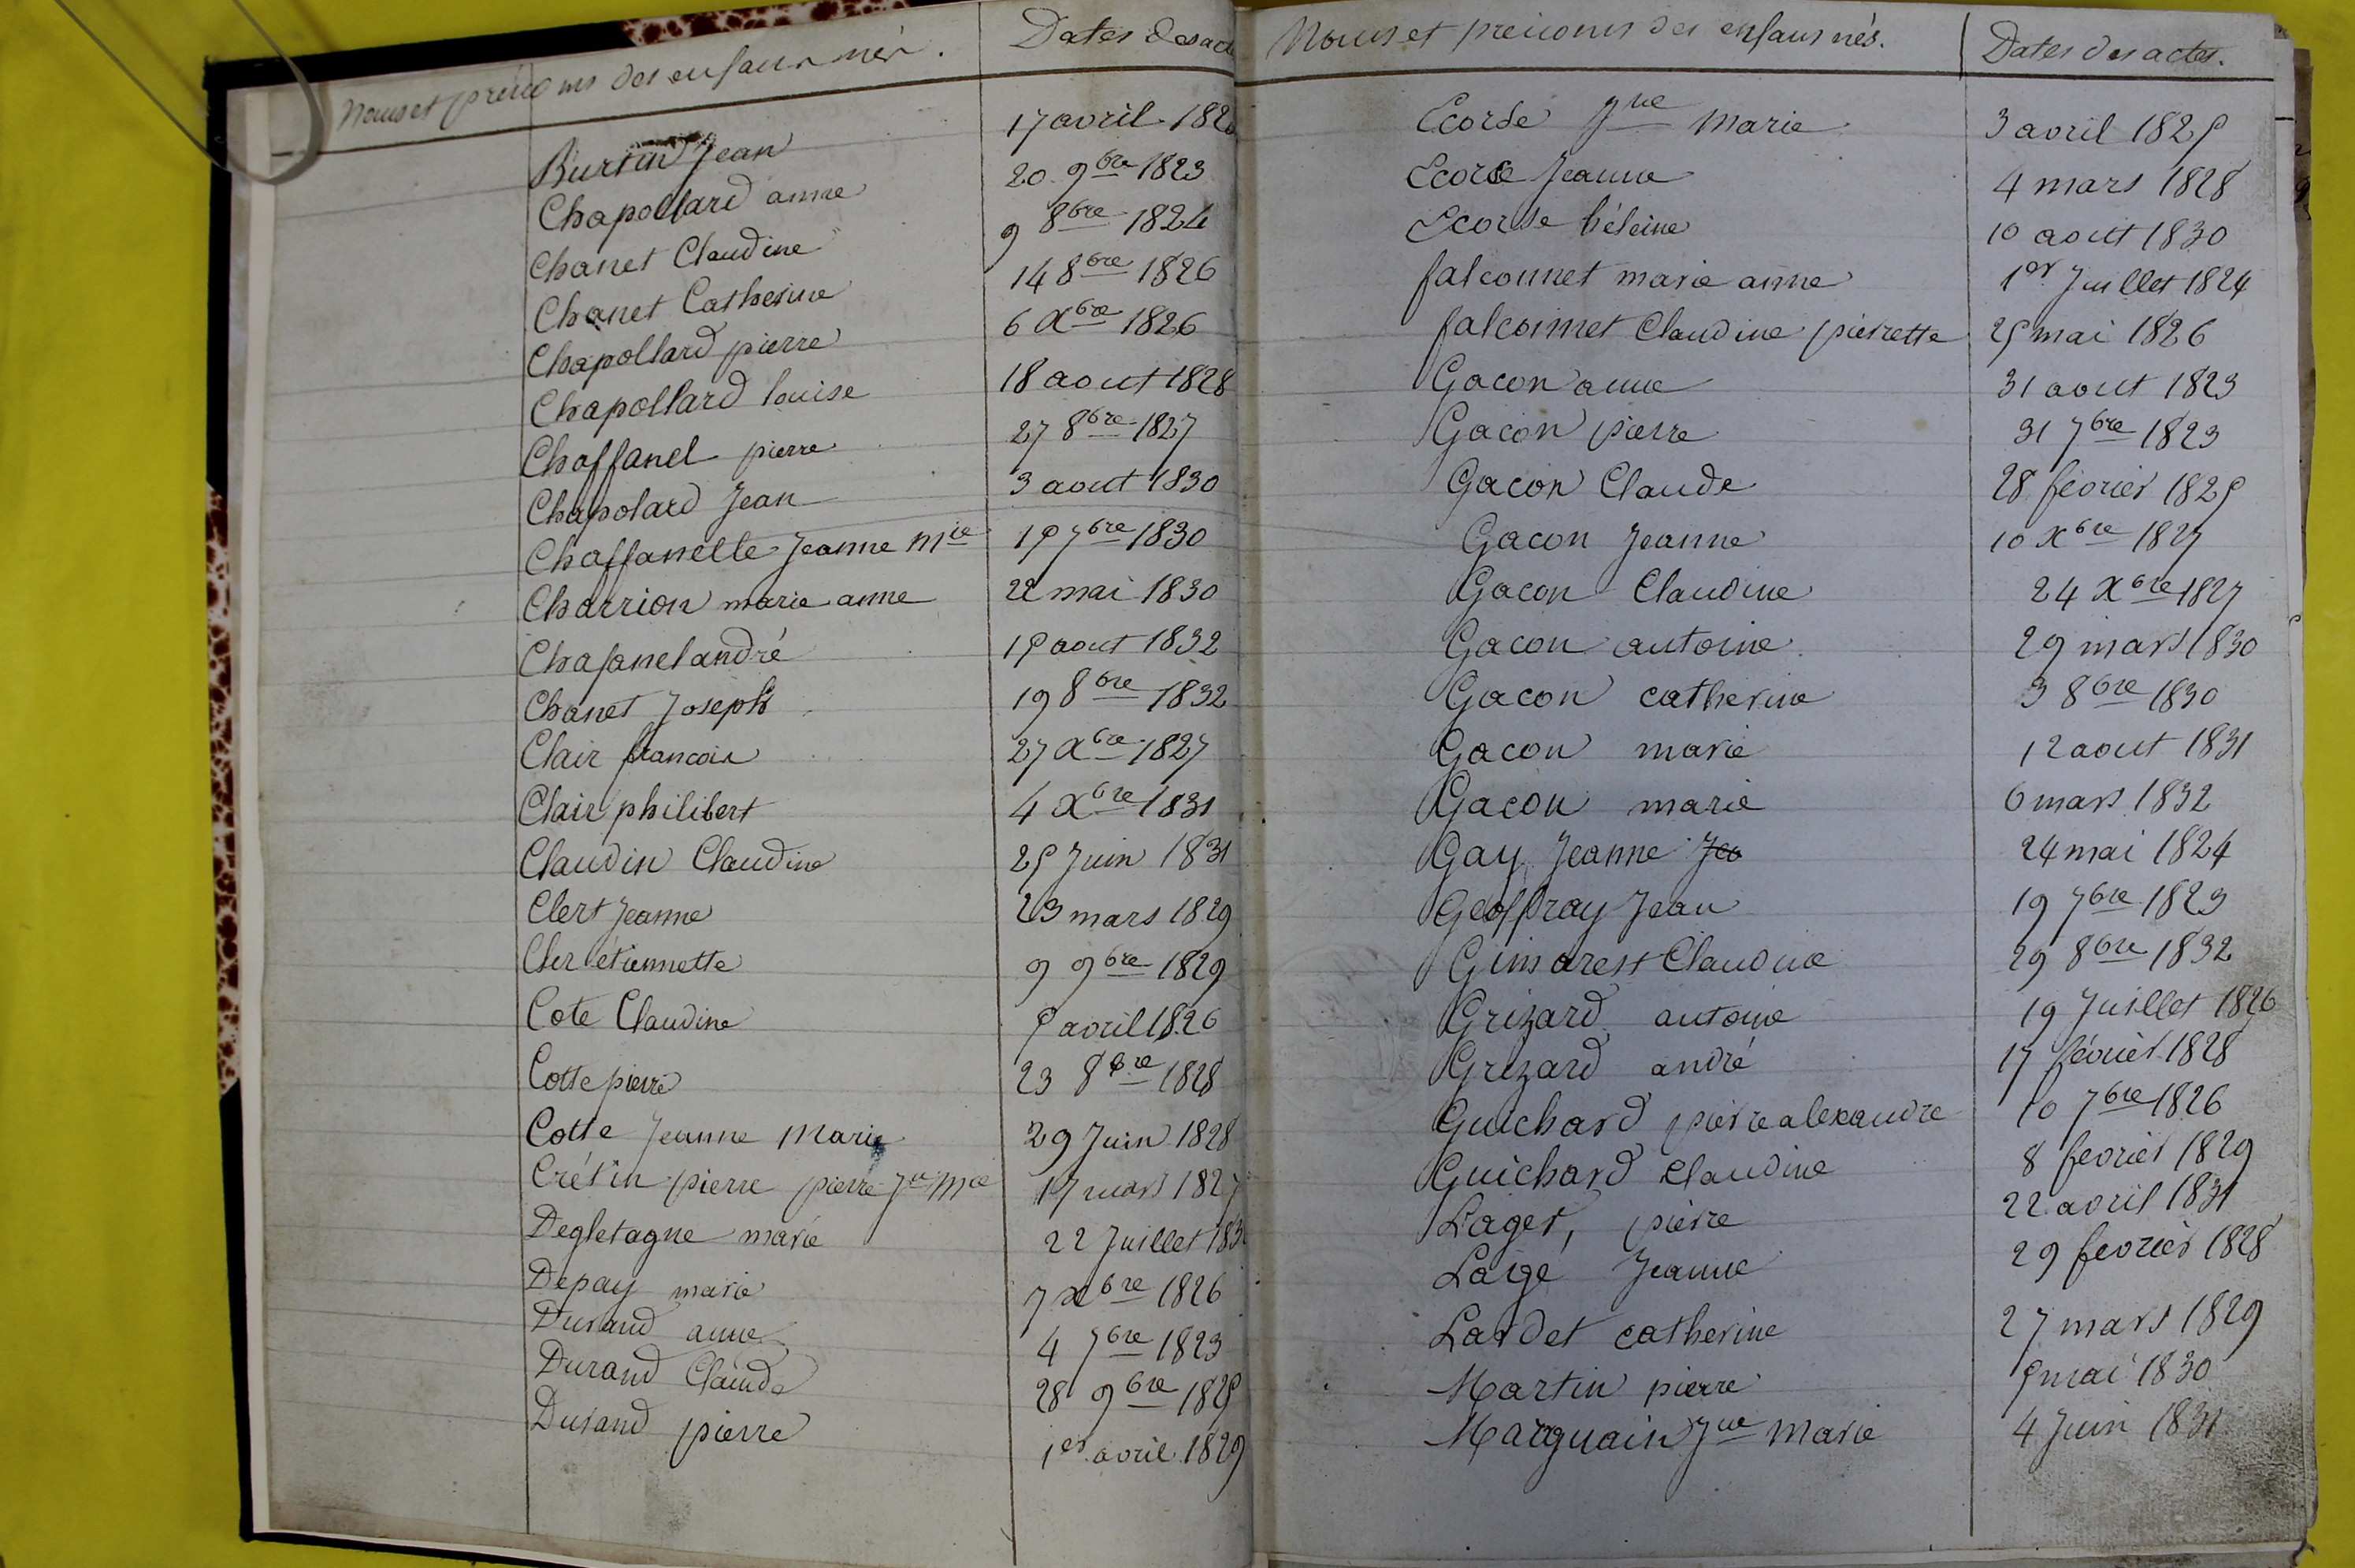 Noms et prénoms des enfans nés. Dates des actes
Burtin Jean 17 avril 182
Chapollard anne 20 9bre 1823
Chanet Claudine 9 8bre 1824
Chanet Catherine 14 8bre 1826
Chapollard pierre 6 Xbre 1826
Chapollard louise 18 aout 1828
Chaffanel pierre 27 8bre 1827
Chapolard Jean 3 aout 1830
Chaffanelle Jeanne Mie 15 7bre 1830
Charrion marie anne 22 mai 1830
Chafanel andré 15 aout 1832
Chanet Joseph 19 8bre 1832
Clair francois 27 Xbre 1827
Clair philibert 4 Xbre 1831
Claudin Claudine 25 Juin 1831
Clert Jeanne 23 mars 1829
Cler étiennette 9 9bre 1829
Cote Claudine 5 avril 1826
Cotte pierre 23 8bre 1828
Cotte Jeanne Marie 29 Juin 1828
Crétin pierre pierre Jn Mie 17 mars 1827
Degletagne marie 22 Juillet 183
Depay marie 7 Xbre 1826
Durand anne 4 7bre 1823
Durand Claude 28 9bre 1825
Durand pierre 1er avril 1829
Noms et prénoms des enfans nés. Dates des actes.
Ecorse Jne Marie 3 avril 1825
Ecorse Jeanne 4 mars 1828
Ecorse héleine 10 aout 1830
falconnet marie anne 1er Juillet 1824
falconnet Claudine pierrette 25 mai 1826
Gacon anne 31 aout 1823
Gacon pierre 31 7bre 1823
Gacon Claude 28 février 1825
Gacon Jeanne 10 Xbre 1827
Gacon Claudine 24 Xbre 1827
Gacon antoine 29 mars 1830
Gacon catherine 3 8bre 1830
Gacon marie 12 aout 1831
Gacon marie 6 mars 1832
Gay Jeanne Jea 24 mai 1824
Geoffray Jean 19 7bre 1823
Gimarest Claudine 29 8bre 1832
Grizard antoine 19 Juillet 1826
Grizard andré 17 février 1828
Guichard pierre alexandre 10 7bre 1826
Guichard Claudine 8 fevrier 1829
Lager, pierre 22 avril 1831
Laigé Jeanne 29 fevrier 1828
Lardet catherine 27 mars 1829
Martin pierre 5 mai 1830
Marguain Jne Marie 4 Juin 1831